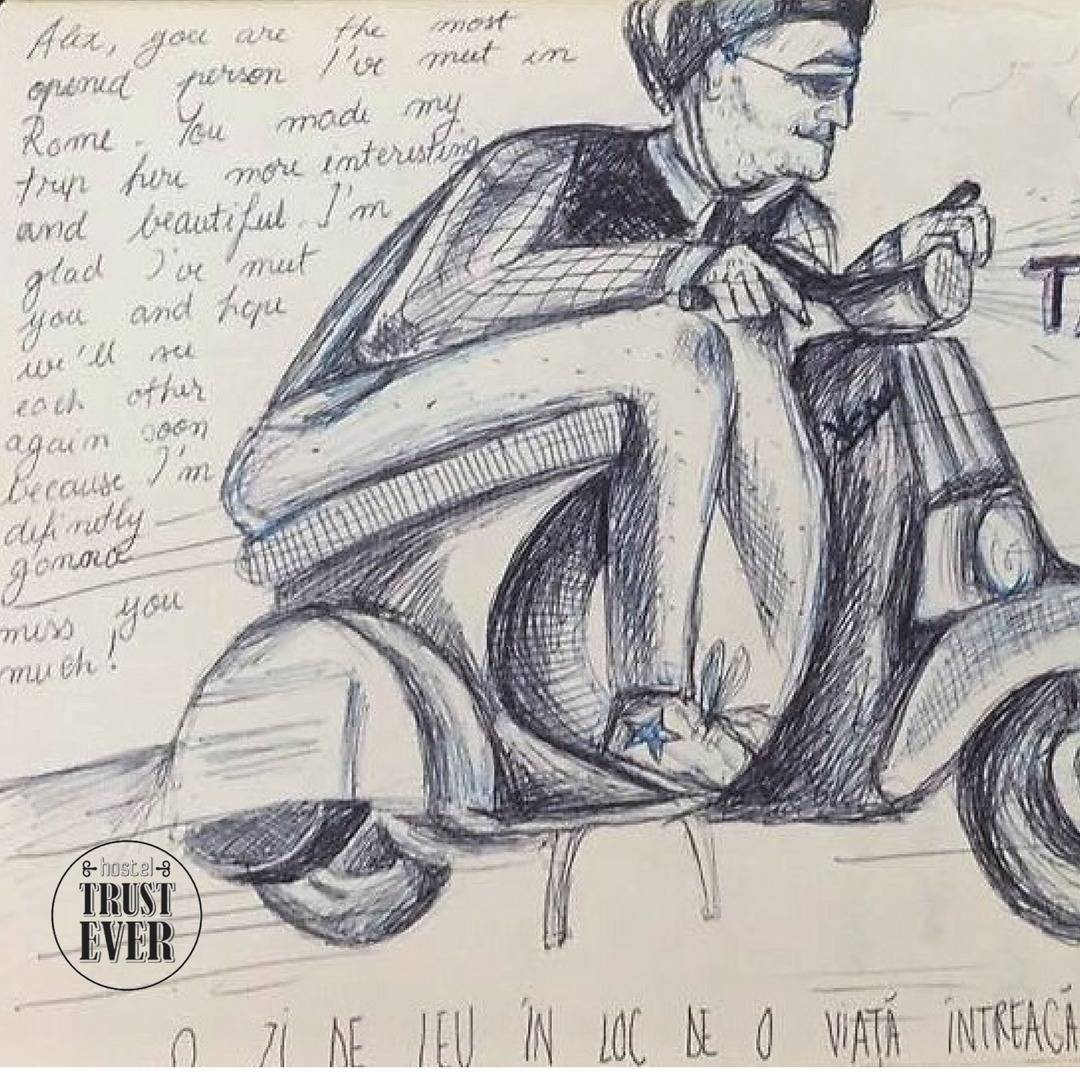 Alex, you are the most
opened person I've meet in
Rome. You made my
trip here more interesting
and beautiful. I'm
glad I've meet
you and hope
we'll see
each other
again soon
because I'm
definetly
gonna
miss you
much!
hostel
TRUST
EVER
O ZI DE LEU ÎN LOC DE O VIAȚĂ ÎNTREAGĂ